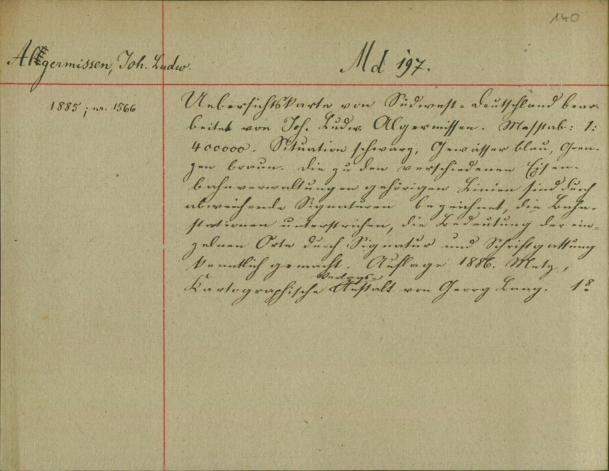 140
Algermissen, Joh. Ludw.
Md 197.
1885; nr. 1566
Uebersichtskarte von Südwest-Deutschland bear-
beitet von Joh. Ludw. Algermissen. Masstab: 1:
400000. Situation schwarz, Gewässer blau, Gren-
zen braun. Die zu den verschiedenen Eisen-
bahnverwaltungen gehörigen Linien sind durch
abweichende Signaturen bezeichnet, die Bahn-
stationen unterstrichen, die Bedeutung der ein-
zelnen Orte durch Signatur und Schriftgattung
kenntlich gemacht. Auflage 1886. Metz,
Kartographische Verlags-Anstalt von Georg Lang. 1º